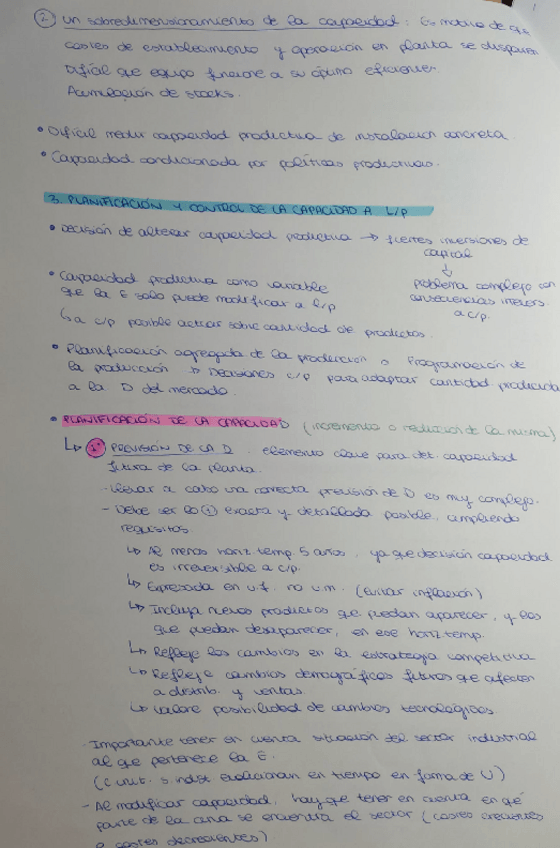 ② un sobredimensionamiento de la capacidad: Es motivo de que
costes de establecimiento y operación en planta se disparen
Difícil que equipo funcione a su óptimo eficiente.
Acumulación de stocks.
• Difícil medir capacidad productiva de instalación concreta.
• Capacidad condicionada por políticas productivas.
3. PLANIFICACIÓN Y CONTROL DE LA CAPACIDAD A L/P
• Decisión de alterar capacidad productiva → fuertes inversiones de
capital
↓
problema complejo con
consecuencias
a c/p.
• Capacidad productiva como variable
que la E solo puede modificar a l/p
↳ a c/p posible actuar sobre cantidad de productos.
• Planificación agregada de la producción o Programación de
la producción → Decisiones c/p para adaptar cantidad producida
a la D del mercado.
• PLANIFICACIÓN DE LA CAPACIDAD (incremento o reducción de la misma)
↳ 1º PREVISIÓN DE LA D. elemento clave para det. capacidad
futura de la planta.
- llevar a cabo una correcta previsión de D es muy complejo.
- Debe ser lo (+) exacta y detallada posible, cumpliendo
requisitos.
↳ Al menos horiz. temp. 5 años, ya que decisión capacidad
es irreversible a c/p.
↳ Expresada en u.f. no u.m. (Evitar inflación)
↳ Incluya nuevos productos que puedan aparecer, y los
que puedan desaparecer, en ese horiz. temp.
↳ Refleje los cambios en la estrategia competitiva
↳ Refleje cambios demográficos futuros que afecten
a distrib. y ventas.
↳ Valore posibilidad de cambios tecnológicos.
- Importante tener en cuenta situación del sector industrial
al que pertenece la E.
(C unit. s. indust evolucionan en tiempo en forma de U)
- Al modificar capacidad, hay que tener en cuenta en qué
parte de la curva se encuentra el sector (costes crecientes
o costes decrecientes)